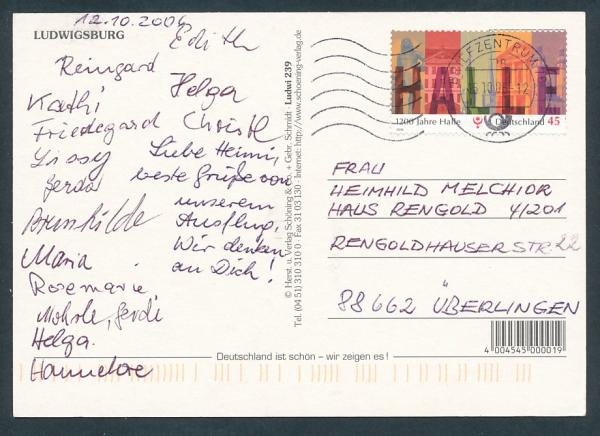 12.10.2006
LUDWIGSBURG
Edith
Reingard
Helga
Kathi
Friedegard Christl
Sissy
Gerda
Brunhilde
Maria
Rosemarie
Gerdi
Helga.
Hannelore
Liebe Heimi,
beste Grüße von
unserem
Ausflug,
Wir denken
an Dich!
© Herst. u. Verlag Schöning & Co. + Gebr. Schmidt · Ludwi 239
Tel. (04 51) 310 310 0 · Fax 31 03 130 · Internet: http://www.schoening-verlag.de
BRIEFZENTRUM
HALLE
1200 Jahre Halle
Deutschland 45
FRAU
HEIMHILD MELCHIOR
HAUS RENGOLD 4/201
RENGOLDHAUSERSTR. 22
88662 ÜBERLINGEN
4 004545 000019
Deutschland ist schön – wir zeigen es !